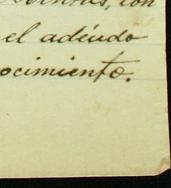 con
el adeudo
ocimiento.